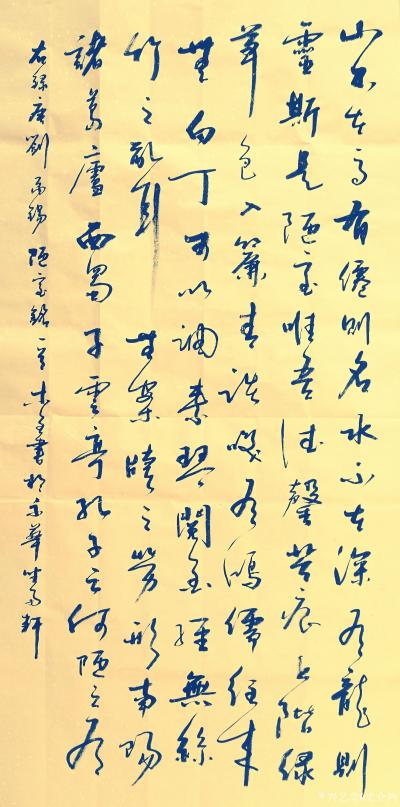 山不在高有僊則名水不在深有龍則
靈斯是陋室唯吾德馨苔痕上階緑
草色入簾青談笑有鴻儒往來
無白丁可以調素琴閱金經無絲
竹之亂耳無案牘之勞形南陽
諸葛廬西蜀子雲亭孔子云何陋之有
右録唐劉禹錫陋室銘一首書於京華軒